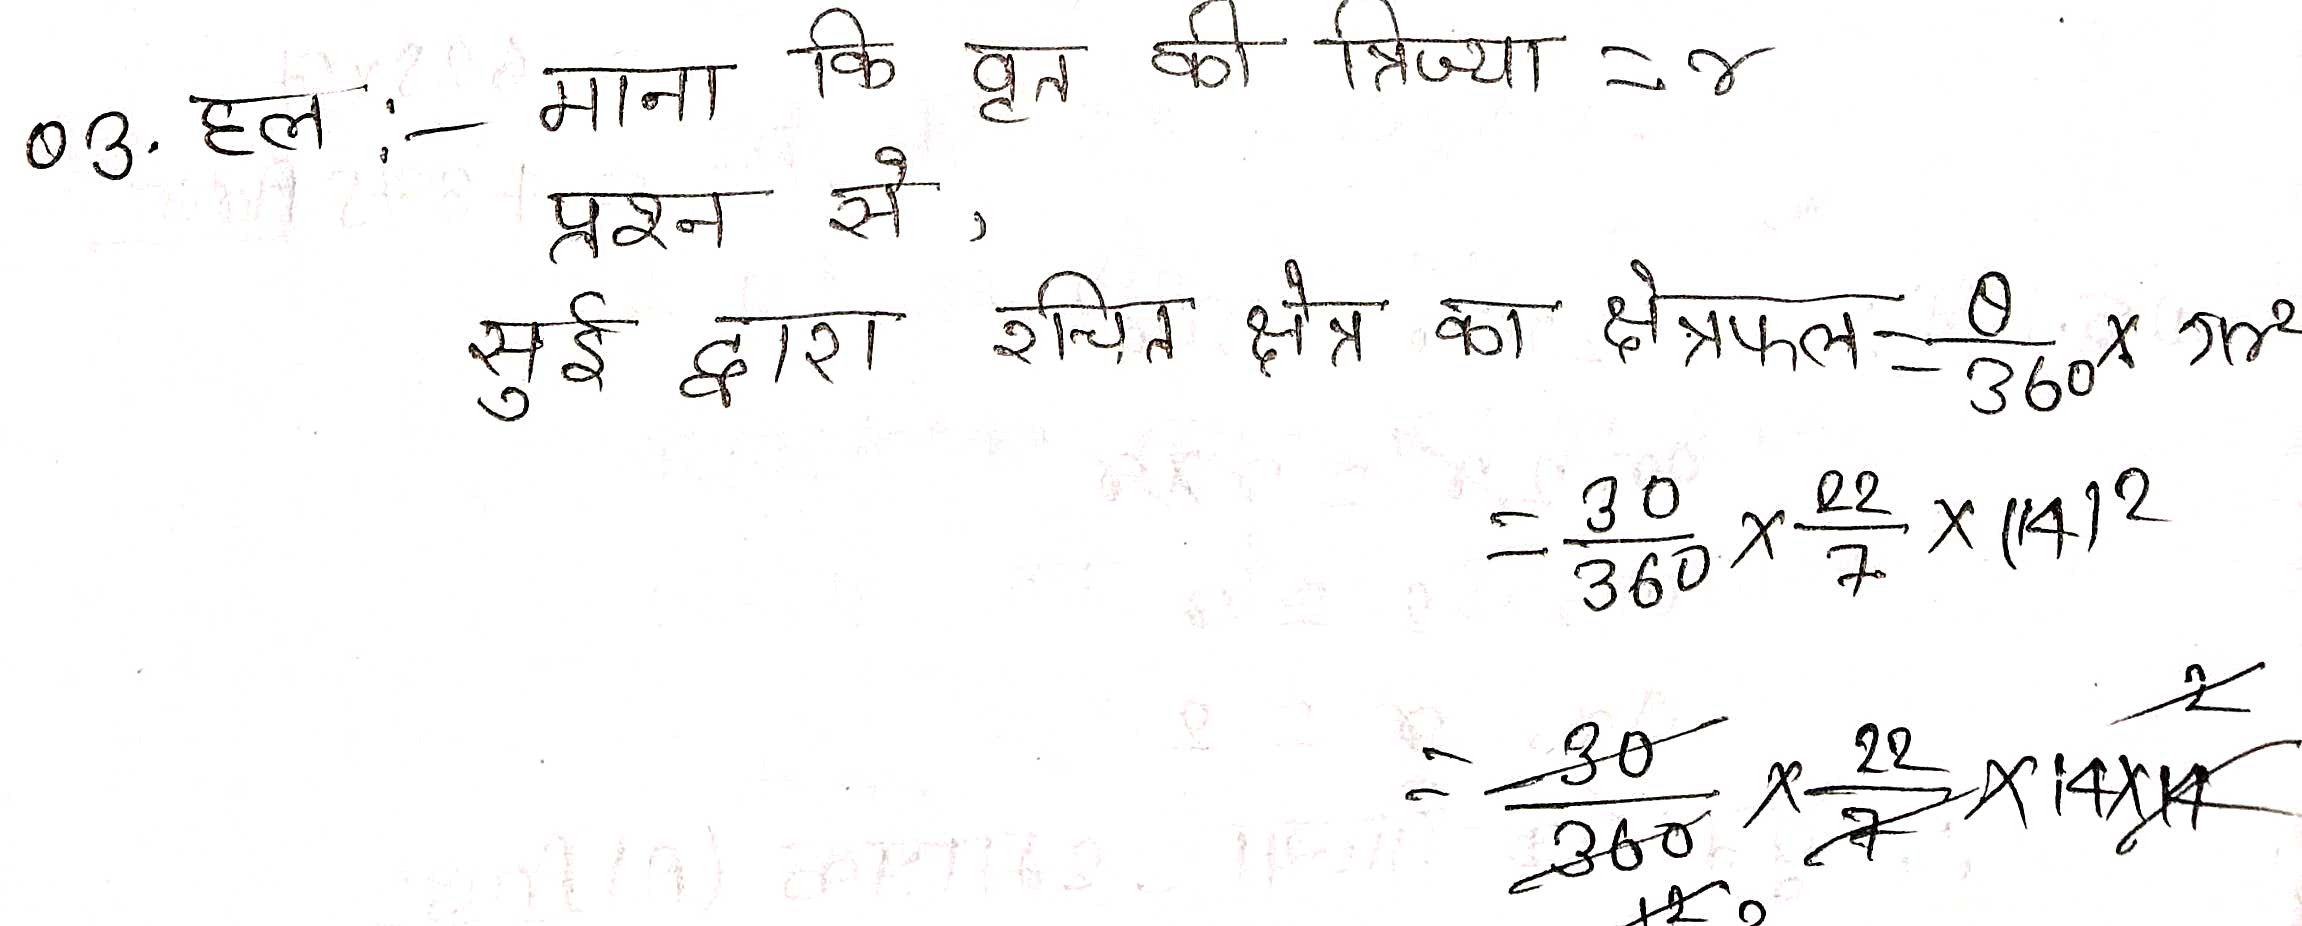 03. हल :- माना कि वृत की त्रिज्या = r
प्रश्न से,
सुई द्वारा रचित क्षेत्र का क्षेत्रफल = θ/360 × πr²
= 30/360 × 22/7 × (14)²
2
= 30/360 × 22/7 × 14 × 14
12